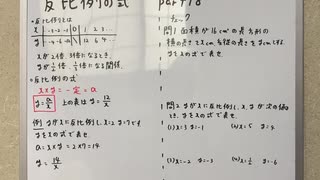 反比例の式 part78
・反比例とは
x -3 -2 -1 0 1 2 3
y 12 6 4
xが2倍、3倍になるとき、
yが1/2倍、1/3倍になる関係。
・反比例の式
x×y=一定=a
y=a/x 上の表は y=12/x
例 yがxに反比例し、x=2, y=7です
yをxの式で表せ
a=x×y=2×7=14
y=14/x
問1 面積が16cm²の長方形の
横の長さをxcm、縦の長さをycmとする。
yをxの式で表せ
問2 yがxに反比例し、x, yが次の値の
とき、yをxの式で表せ。
(1) x=3 y=-1 (2) x=5 y=4
(3) x=-2 y=-3 (4) x=1/2 y=-6